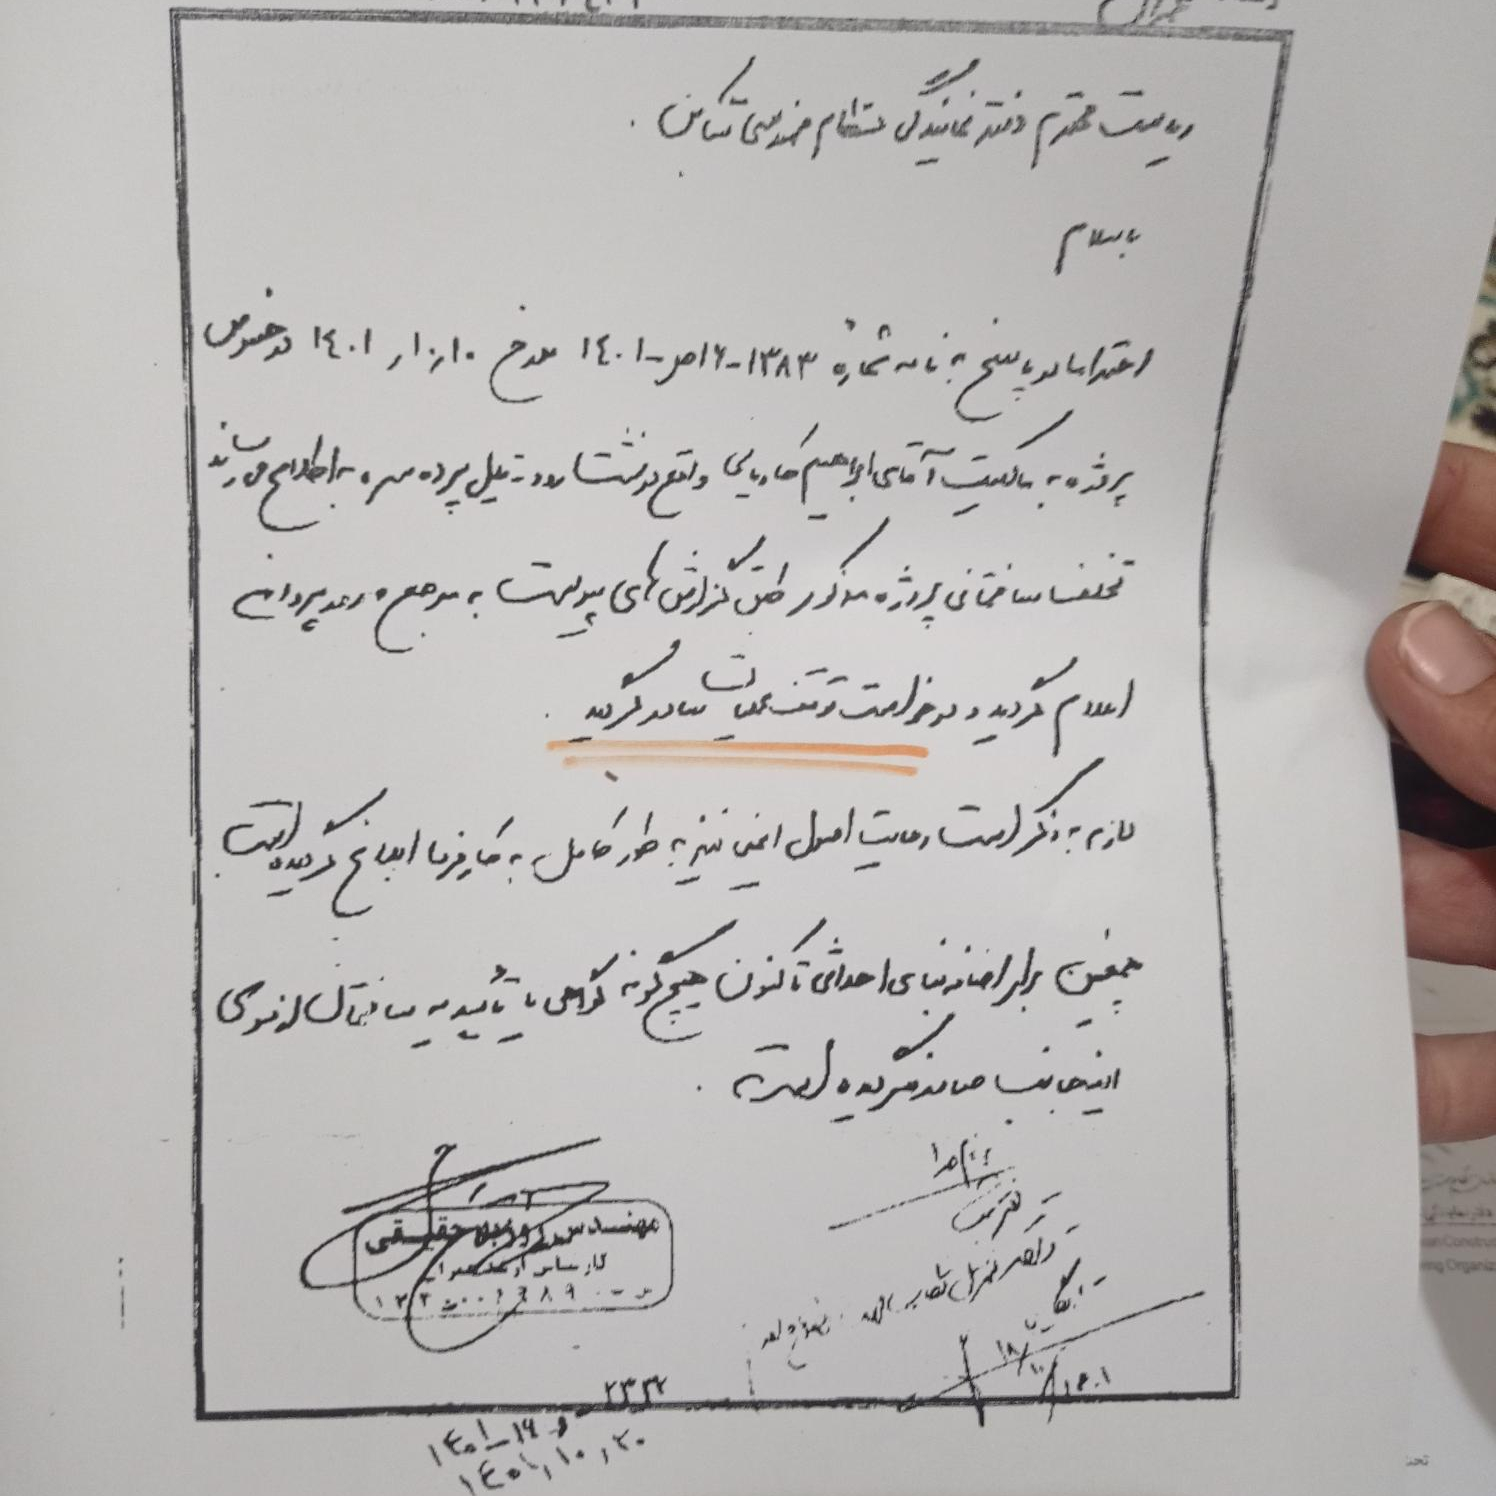 ریاست محترم دفتر نمایندگی نظام مهندسی تنکابن.
با سلام
احتراما در پاسخ به نامه شماره ۱۳۸۳-۱۶ص-۱۴۰۱ مورخ ۱۴۰۱ در خصوص
پروژه به مالکیت آقای ابراهیم واقع در نشتارود به اطلاع میرساند
تخلف ساختمانی پروژه مذکور طبق گزارش های پیوست به مرجع صدور پروانه
اعلام گردید و درخواست توقف عملیات صادر گردید.
لازم به ذکر است رعایت اصول ایمنی نیز به طور کامل به کارفرما ابلاغ گردیده است.
همچنین برای اضافه بنای احداثی تاکنون هیچگونه گواهی یا تأییدیه ساختمان از سوی
اینجانب صادر نگردیده است.
مهندس حقیقی
۱۴۰۱/۱۰/۱۸
۲۳۳۴
۱۴۰۱-۱۶ص
۱۴۰۱,۱۰,۲۰